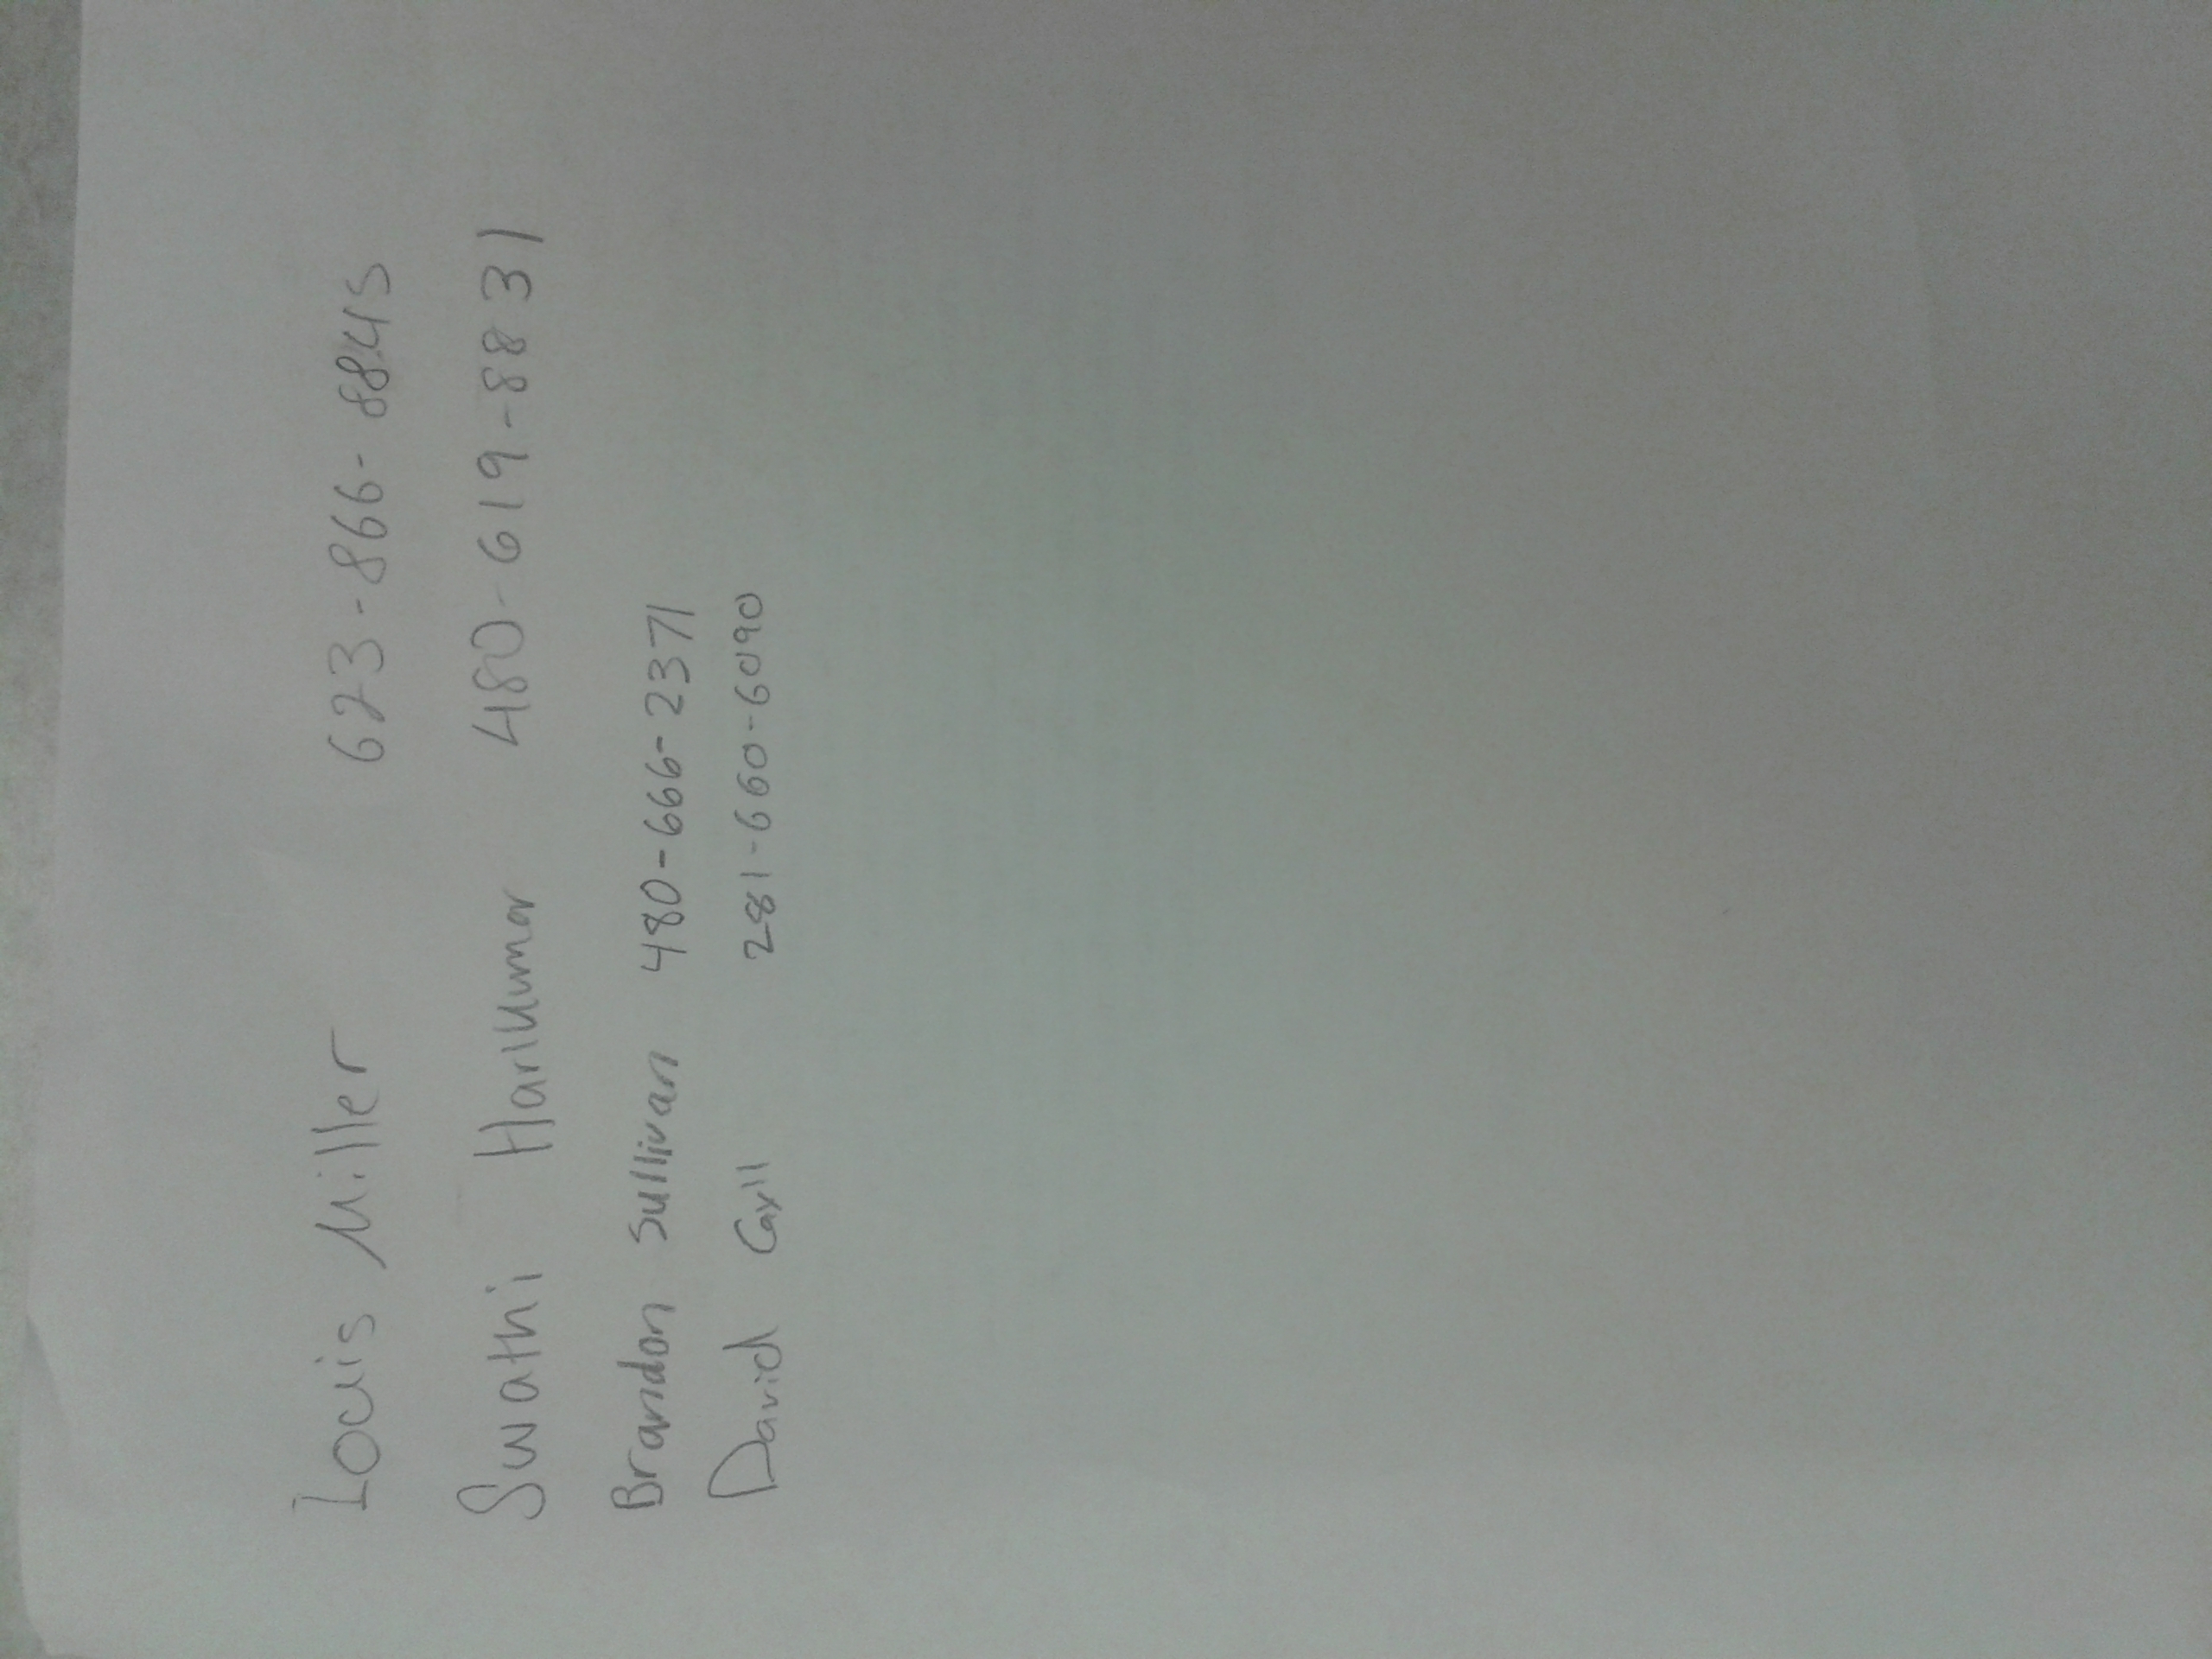 Louis Miller 623-866-8845
Swathi Harikumar 480-619-8831
Brandon Sullivan 480-666-2371
David 281-660-6090